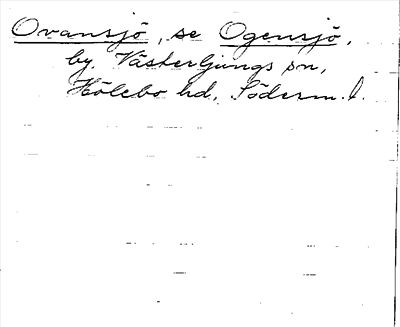 Ovansjö, se Ogensjö,
by, Västerljungs sn,
Hölebo hd, Söderm. l.